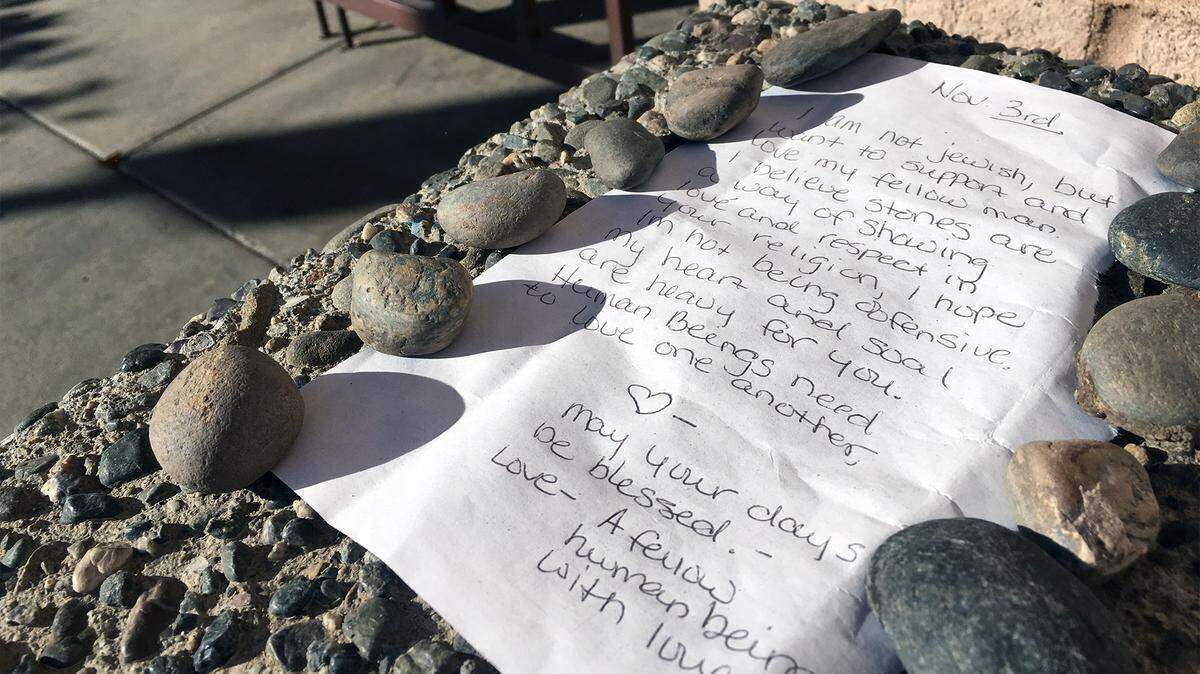 Nov 3rd
I am not jewish, but
want to support and
love my fellow man.
I believe stones are
a way of showing
love and respect in
your religion, I hope
I'm not being offensive.
my heart and soal
are heavy for you.
Human Beengs need
to love one another,
♡-
may your days
be blessed. -
Love-
A fellow
human being
with love